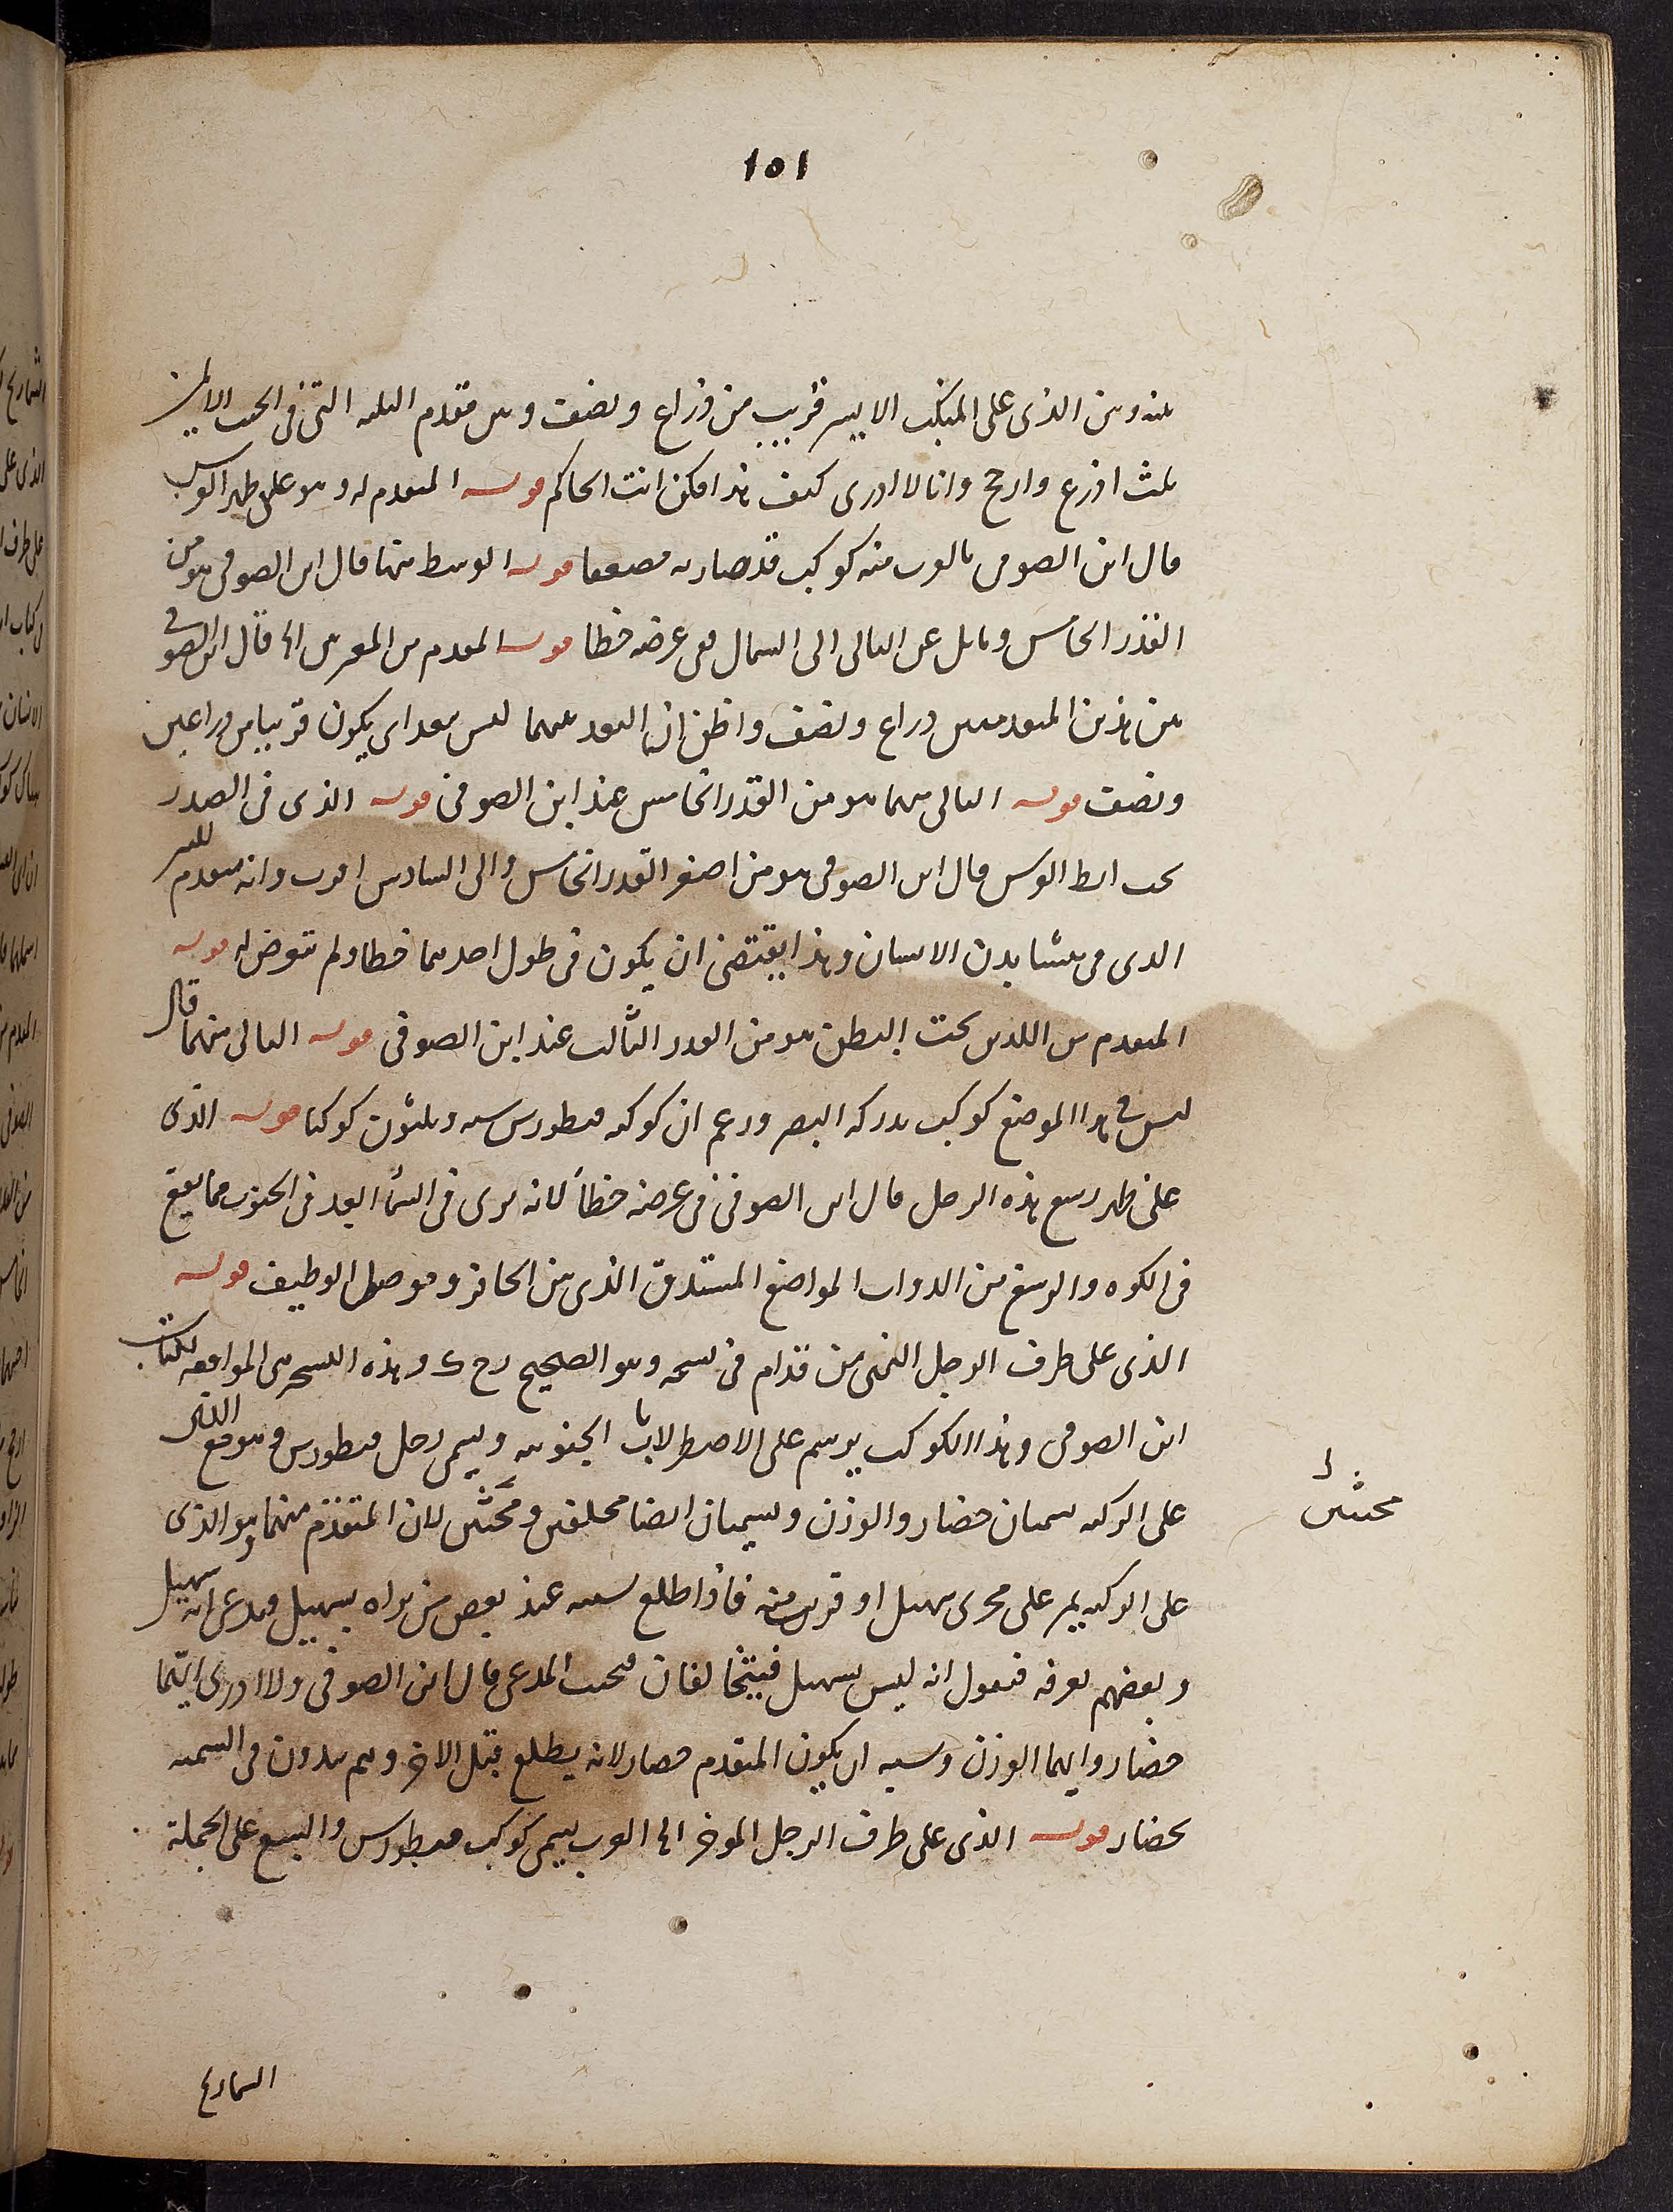 ١٥١
بينه وبين الذى على المنكب الايسر قريب من ذراع ونصف وبين مقدم الثلثه التى فى الجنب الايمن
ثلث اذرع وارجح وانا لا ادرى كيف هذا فكن انت الحاكم قوله المتقدم له وهو على ظهر الفرس
قال ابن الصوفى بالقرب منه كوكب قد صار به مضعفا قوله الوسط منها قال ابن الصوفى هو من
القدر الخامس ومايل عن التالى الى الشمال ففى عرضه خطا قوله المتقدم من الـ قال ابن الصوفى
بين هذين المتقدمين ذراع ونصف واظن ان البعد بينهما ليس بعد اى يكون قريبا من ذراعين
ونصف قوله التالى منهما هو من القدر الخامس عند ابن الصوفى قوله الذى فى الصدر
تحت ابط الفرس قال ابن الصوفى هو من اصغر القدر الخامس والى السادس اقرب وانه متقدم للنير
الذى فى منشا بدن الانسان وهذا يقتضى ان يكون فى طول احدهما خطا ولم يتعرض له قوله
المتقدم من اللذين تحت البطن هو من القدر الثالث عند ابن الصوفى قوله التالى منهما قال
ليس فى هذا الموضع كوكب يدركه البصر وزعم ان كوكبه قنطورس سته وثلثون كوكبا قوله الذى
على ظهر رسغ هذه الرجل قال ابن الصوفى فى عرضه خطأ لانه يرى فى السماء ابعد فى الجنوب مما يقع
فى الكره والرسغ من الدواب المواضع المستدق الذى بين الحافر وموصل الوظيف قوله
الذى على طرف الرجل اليمنى من قدام فى نسخه وهو الصحيح رح ك وهذه النسخه هى الموافقه لكتاب
ابن الصوفى وهذا الكوكب يرسم على الاصطرلابات الجنوبيه ويسمى رجل قنطورس وهو مع الذى
على الركبه يسميان حضار والوزن ويسميان ايضا محلفين ومحنثين لان المتقدم منهما وهو الذى
على الركبه يمر على مجرى سهيل او قريب منه فاذا طلع يسبه عند بعض من يراه بسهيل فيدعى انه سهيل
وبعضهم يعرفه فيقول انه ليس بسهيل فيتحالفان فيحنث المدعى قال ابن الصوفى ولا ادرى ايهما
حضار وايهما الوزن ويشبه ان يكون المتقدم حضار لانه يطلع قبل الاخر وهم يبدون فى التسميه
بحضار قوله الذى على طرف الرجل المؤخر الى القرب يسمى كوكب قنطورس والسبع على الجملة
محنثين
الشماريخ